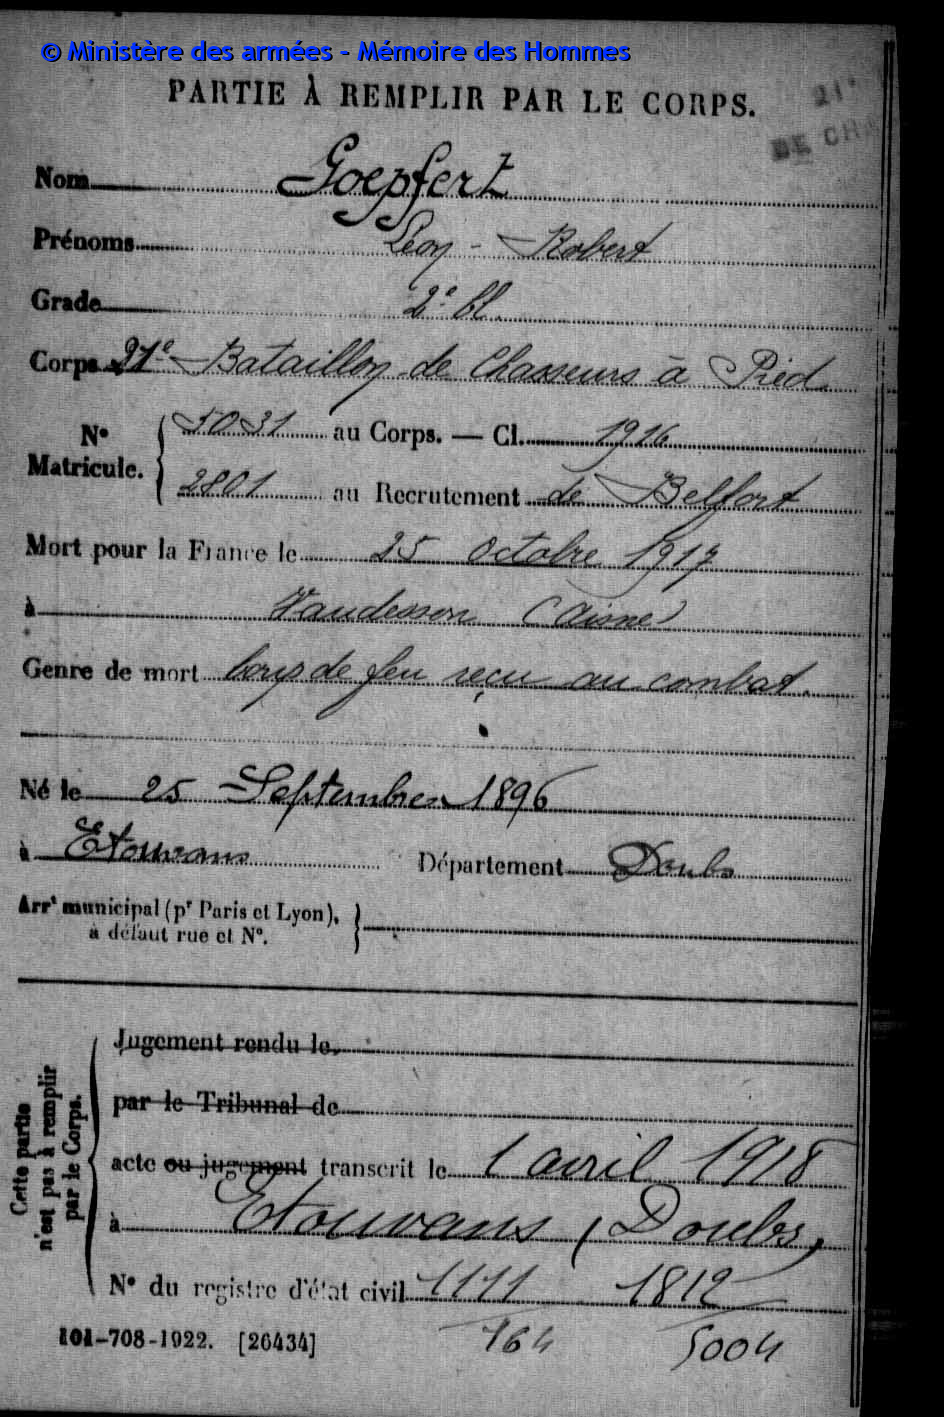 © Ministère des armées - Mémoire des Hommes
PARTIE À REMPLIR PAR LE CORPS.
21e
DE CHA
Nom Goepfert
Prénoms Léon - Robert
Grade 2e Cl.
Corps 21e Bataillon de Chasseurs à Pied
No Matricule. { 5031 au Corps. — Cl. 1916
2801 au Recrutement de Belfort
Mort pour la France le 25 Octobre 1917
à Vaudesson (Aisne)
Genre de mort Coup de feu reçu au combat.
Né le 25 Septembre 1896
à Etouvans Département Doubs
Arrt municipal (pr Paris et Lyon),
à défaut rue et No. }
Cette partie n'est pas à remplir par le Corps.
Jugement rendu le
par le Tribunal de
acte ou jugement transcrit le 1 avril 1918
à Etouvans (Doubs)
No du registre d'état civil 1111 1812
101-708-1922. [26434] 164 5004